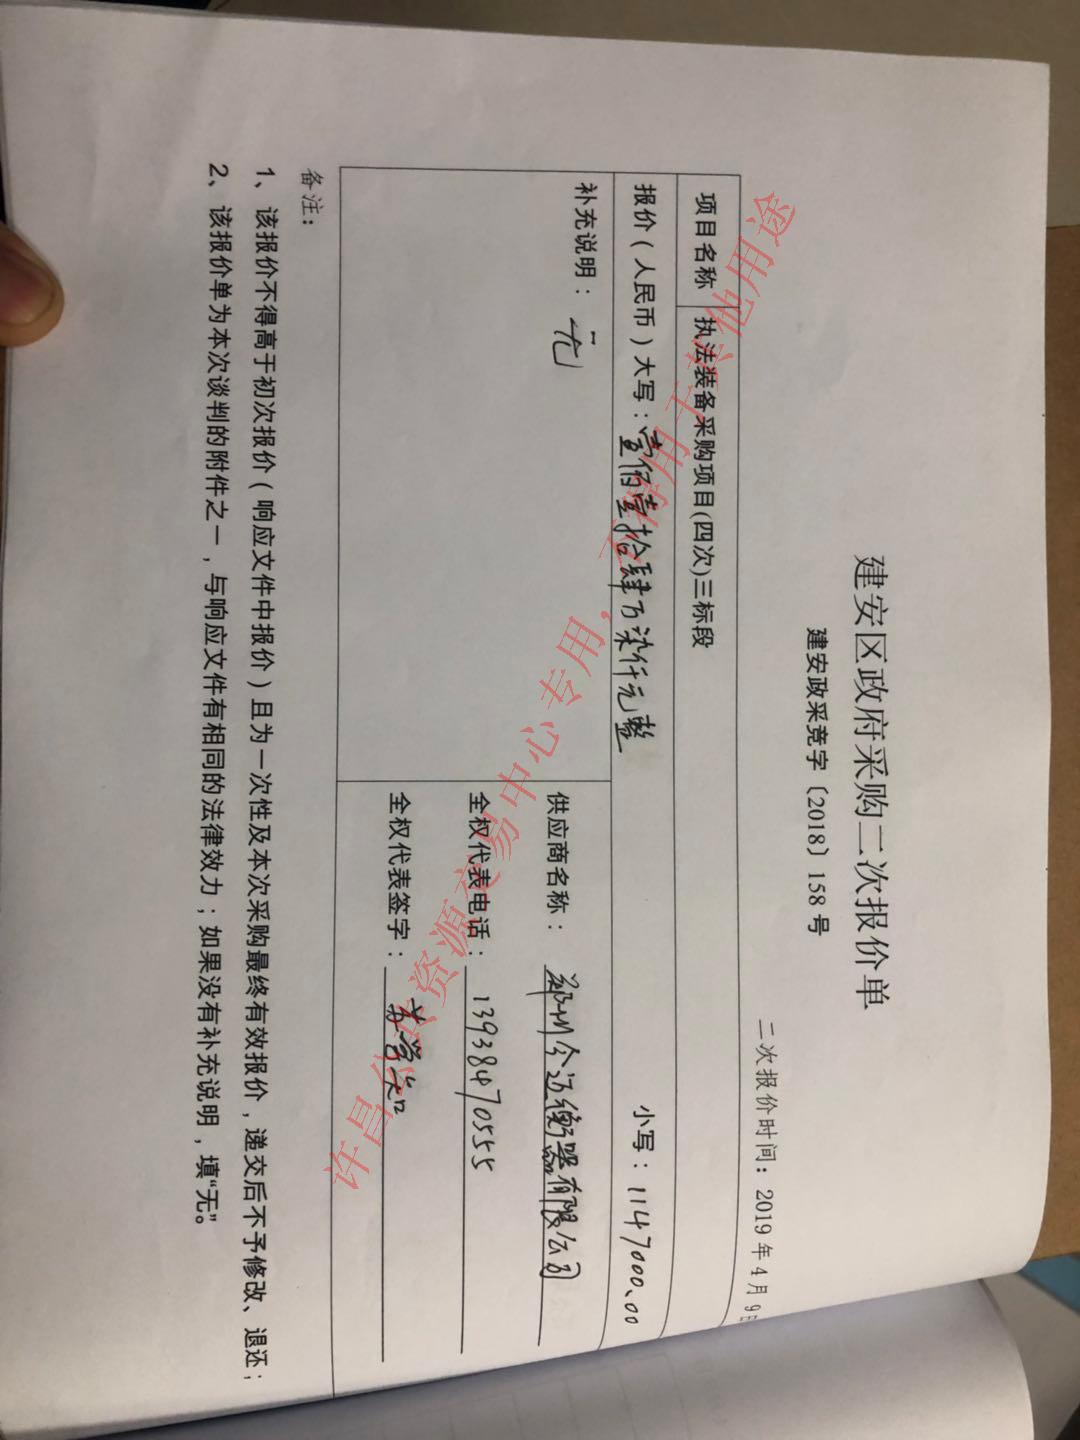 建安区政府采购二次报价单
建安政采竞字〔2018〕158号
二次报价时间：2019年4月9日
项目名称 执法装备采购项目(四次)三标段
报价（人民币）大写：壹佰壹拾肆万柒仟元整 小写：1147000.00
补充说明：无
供应商名称：郑州今迈衡器有限公司
全权代表电话：13938470555
全权代表签字：
备注：
1、该报价不得高于初次报价（响应文件中报价）且为一次性及本次采购最终有效报价，递交后不予修改、退还；
2、该报价单为本次谈判的附件之一，与响应文件有相同的法律效力；如果没有补充说明，填“无”。
许昌公共资源交易中心专用，不得用于其他用途